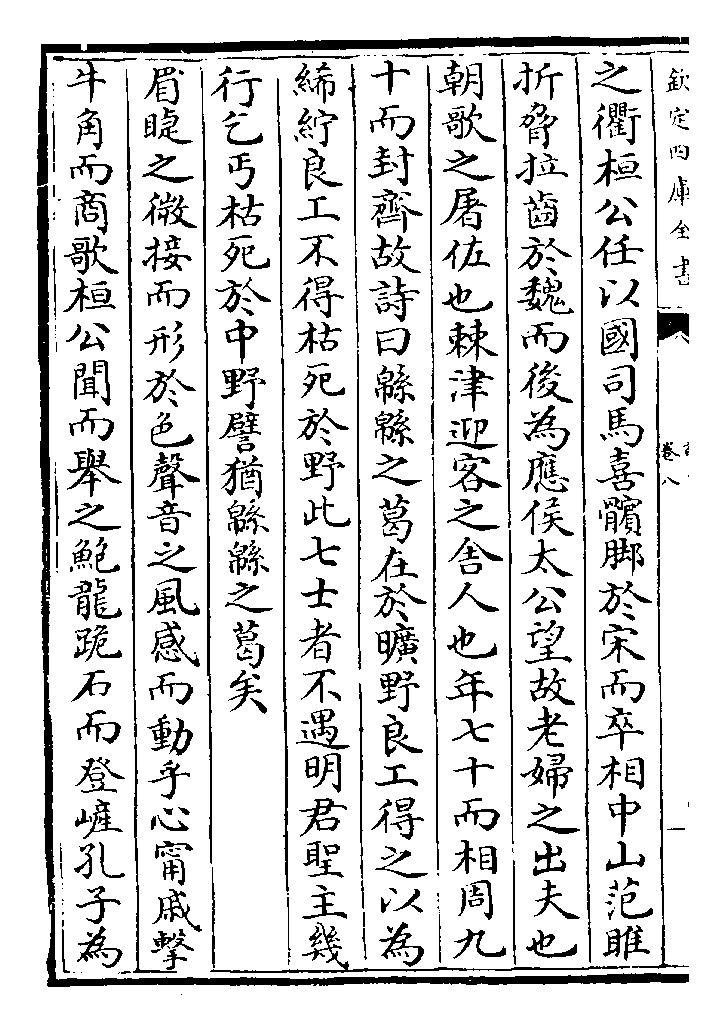 欽定四庫全書
卷八
之衢桓公任以國司馬喜髕脚於宋而卒相中山范雎
折脅拉齒於魏而後為應侯太公望故老婦之出夫也
朝歌之屠佐也棘津迎客之舍人也年七十而相周九
十而封齊故詩曰緜緜之葛在於曠野良工得之以為
絺紵良工不得枯死於野此七士者不遇明君聖主幾
行乞丐枯死於中野譬猶緜緜之葛矣
眉睫之微接而形於色聲音之風感而動乎心甯戚擊
牛角而商歌桓公聞而舉之鮑龍跪石而登嵼孔子為